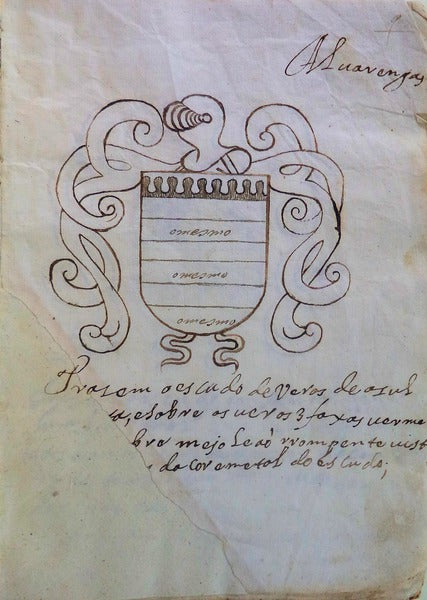 Aluarengas
omesmo
omesmo
omesmo
Trasem o escudo de Veros de asul
, esobre os ueros 3 faxas uerme
bre mejo leaõ rrompente uist
da cor emetal do escudo;